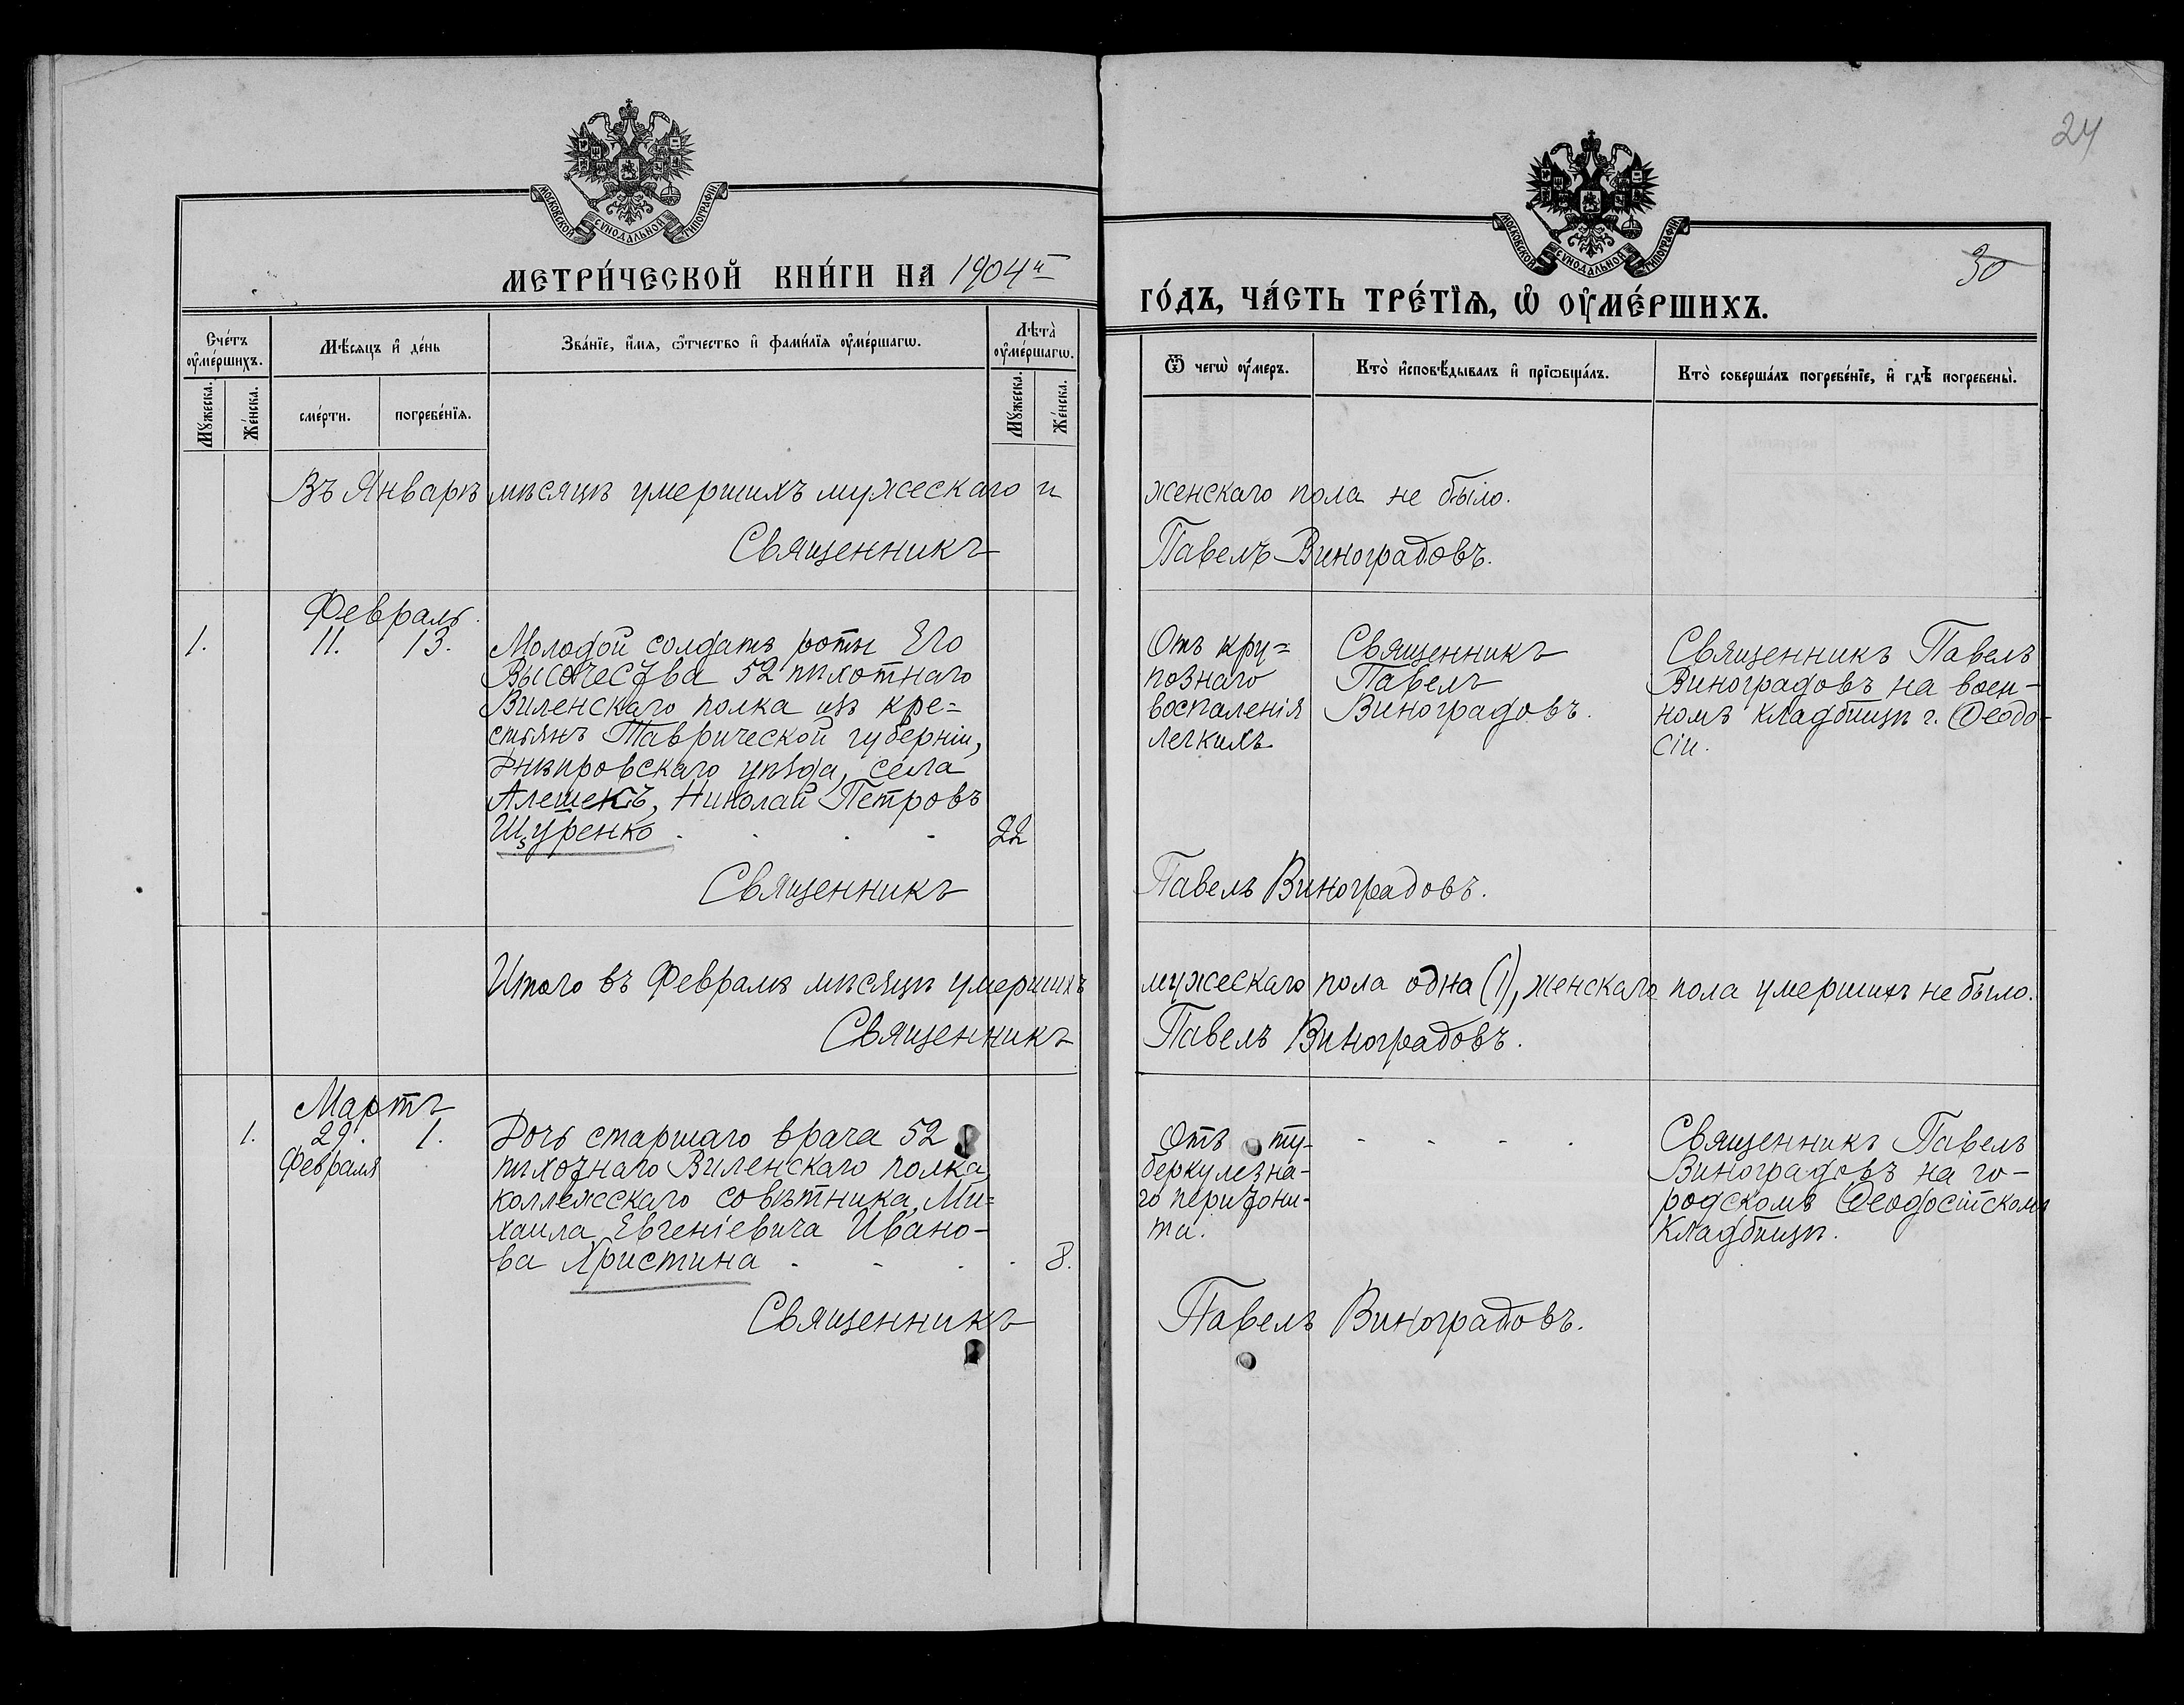 24
30
МОСКОВСКОЙ СѴНОДАЛЬНОЙ ТИПОГРАФІИ
МОСКОВСКОЙ СѴНОДАЛЬНОЙ ТИПОГРАФІИ
МЕТРИ́ЧЕСКОЙ КНИ́ГИ НА 1904й
ГО́ДЪ, ЧА́СТЬ ТРЕ́ТІѦ, Ѡ ОУМЕ́РШИХЪ.
Сче́тъ оуме́ршихъ.
Мѣ́сяцъ и де́нь
Зва́нїе, и́мя, ѻ́тчество и фами́лїя оуме́ршагѡ.
Лѣта̀ оуме́ршагѡ.
Ѿ чегѡ̀ оу́меръ.
Кто̀ исповѣ́дывалъ и прїѡбща́лъ.
Кто̀ соверша́лъ погребе́нїе, и гдѣ̀ погребены̀.
Мꙋ́жеска.
Же́нска.
сме́рти.
погребе́нїя.
Мꙋ́жеска.
Же́нска.
Въ Январѣ мѣсяцѣ умершихъ мужескаго и
женскаго пола не было.
Священникъ
Павелъ Виноградовъ.
Февраль.
1.
11.
13.
Молодой солдатъ роты Его
Высочества 52 пѣхотнаго
Виленскаго полка изъ кре=
стьянъ Таврической губерніи,
Днѣпровскаго уѣзда, села
Алешекъ, Николай Петровъ
Щуренко . . . -
22
Отъ кру=
познаго
воспаленія
легкихъ
Священникъ
Павелъ
Виноградовъ.
Священникъ Павелъ
Виноградовъ на воен-
номъ кладбищѣ г. Ѳеодо-
сіи.
Священникъ
Павелъ Виноградовъ.
Итого въ Февралѣ мѣсяцѣ умершихъ
мужескаго пола одна (1), женскаго пола умершихъ не было.
Священникъ
Павелъ Виноградовъ.
Мартъ
1.
29.
1.
Февраля
Дочь старшаго врача 52
пѣхотнаго Виленскаго полка,
коллежскаго совѣтника, Ми=
хаила Евгеніевича Ивано-
ва Христина . - . .
8.
Отъ ту-
беркулезна-
го перитони-
та.
- - - .
Священникъ Павелъ
Виноградовъ на го-
родскомъ Ѳеодосійскомъ
кладбищѣ.
Священникъ
Павелъ Виноградовъ.